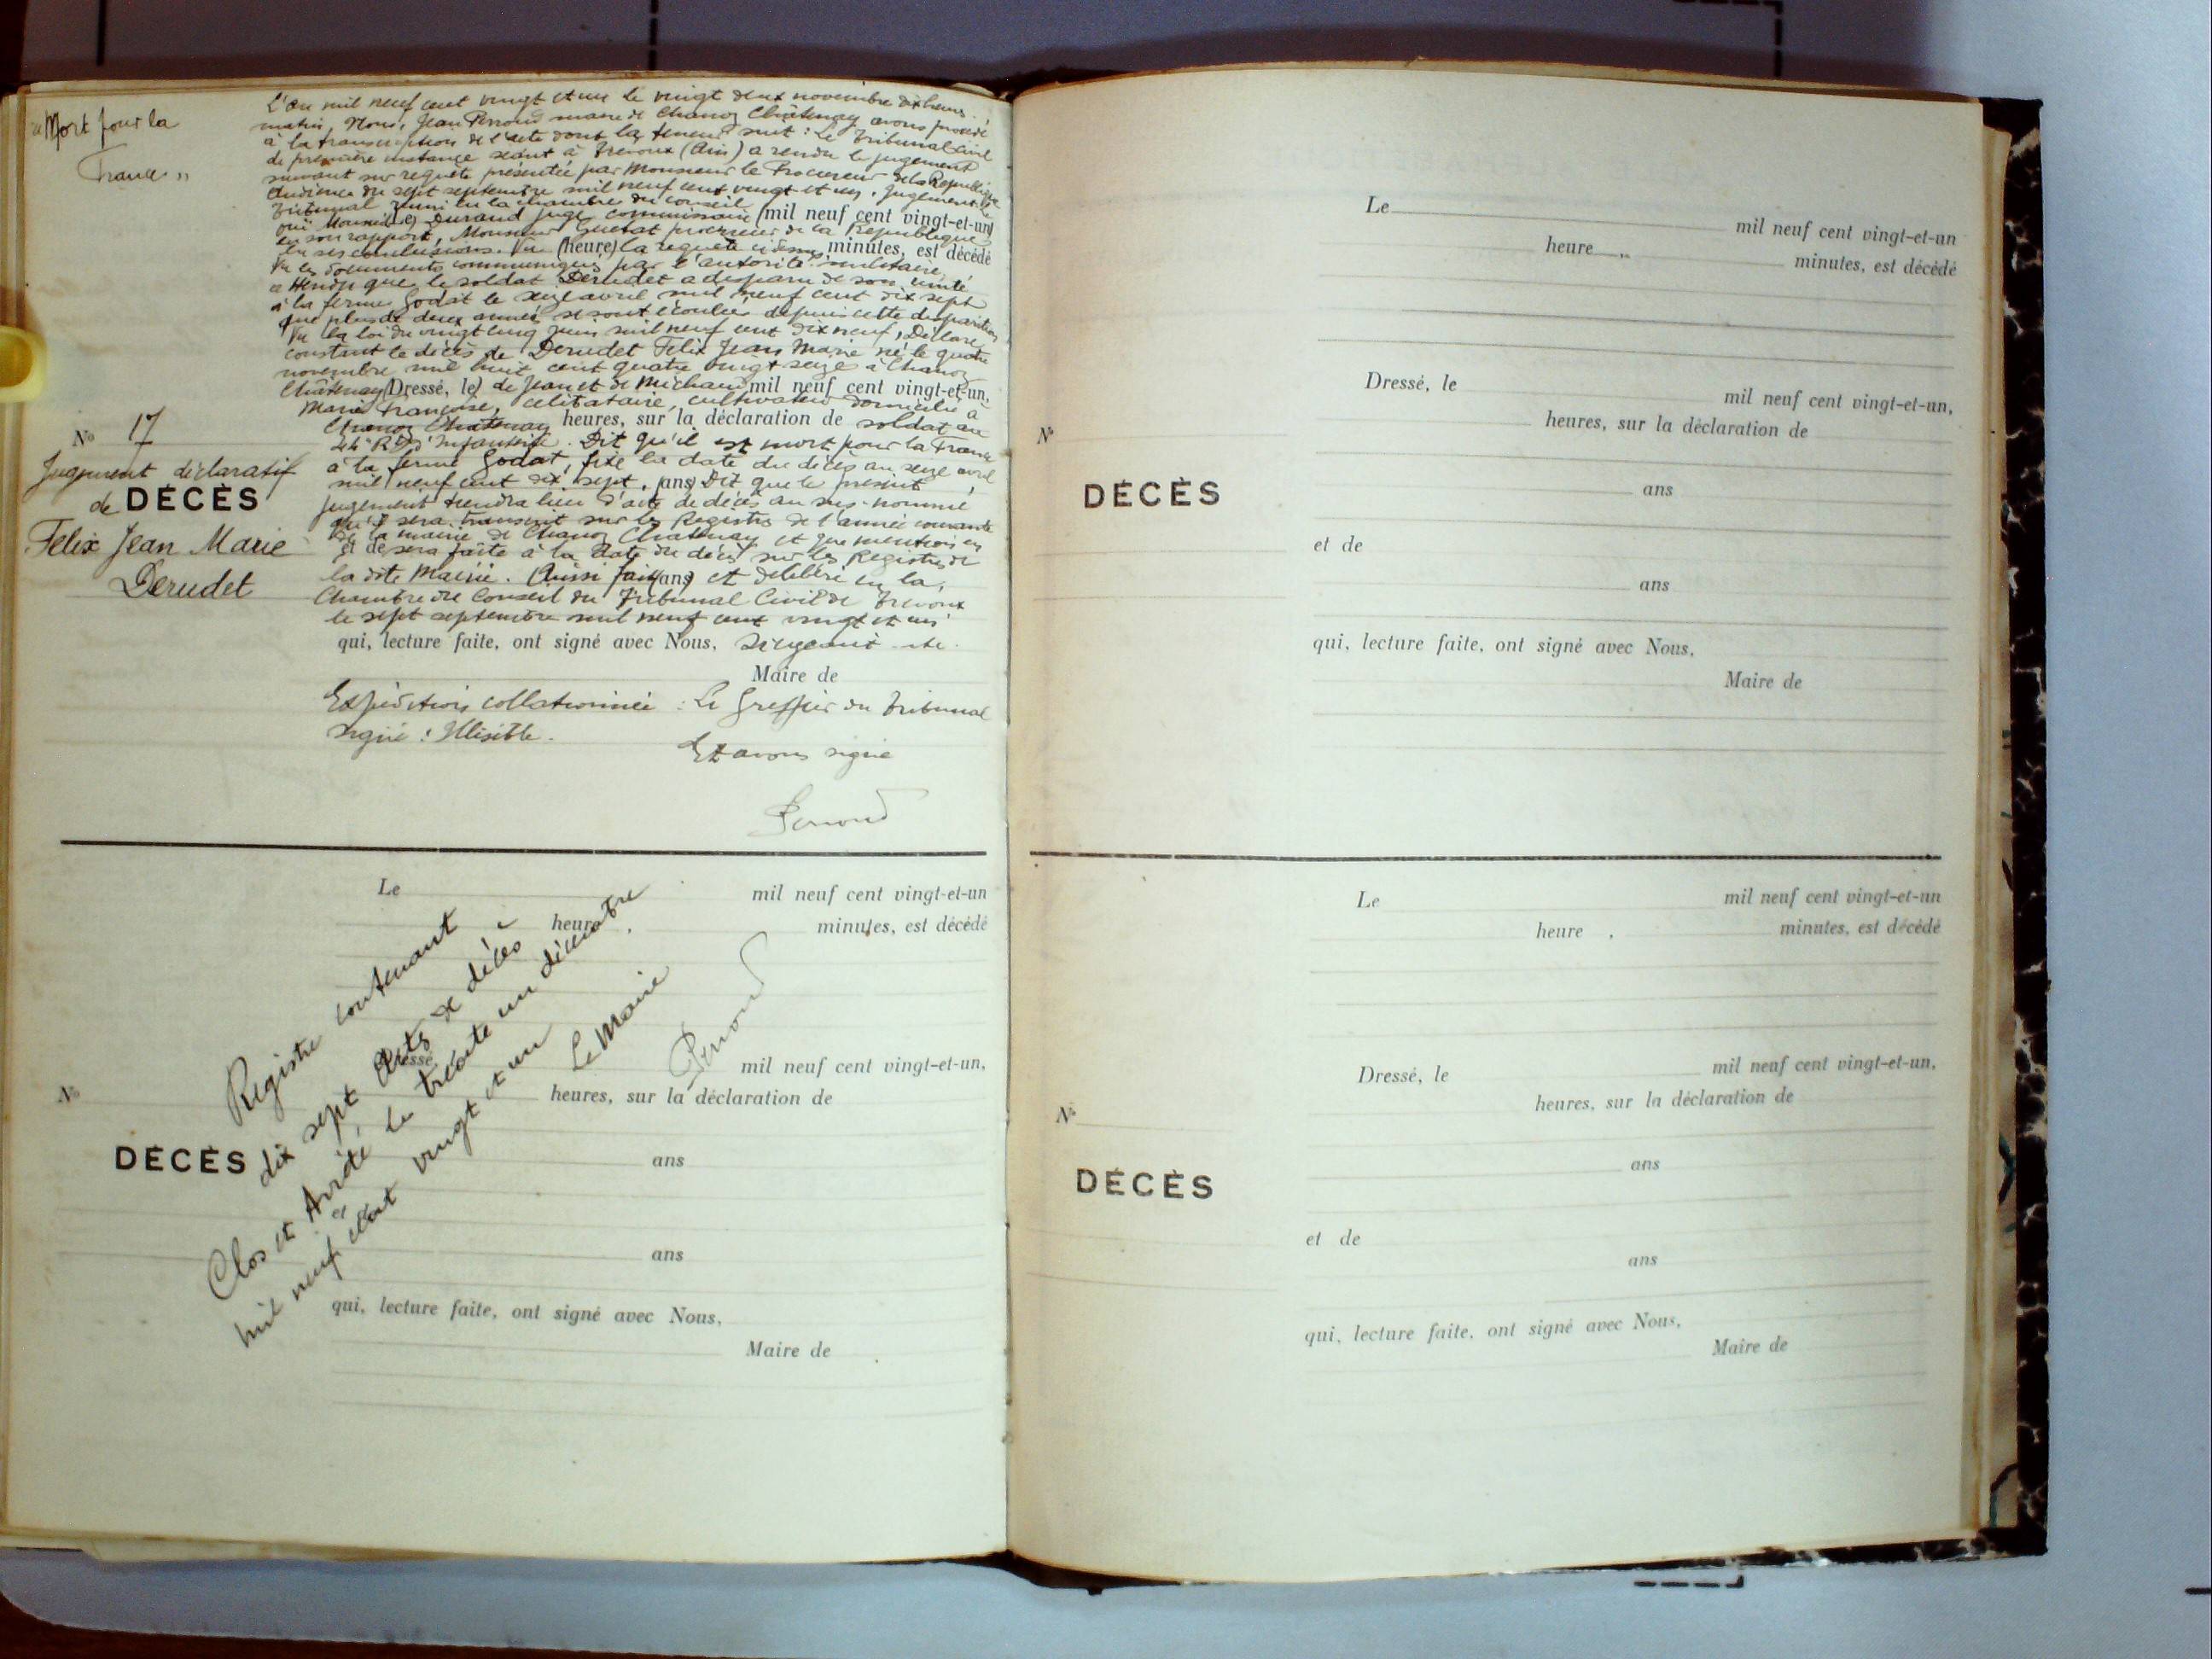 « Mort pour la
France »
N° 17
Jugement déclaratif
de DÉCÈS
Felix Jean Marie
Derudet
L'an mil neuf cent vingt et un le vingt deux novembre dix heures
matin, Nous, Jean Perroud maire de Chanoz Châtenay avons procédé
à la transcription de l'acte dont la teneur suit : Le Tribunal Civil
de première instance séant à Trevoux (Ain) a rendu le jugement
suivant sur requête présentée par Monsieur le Procureur de la République
Audience du sept septembre mil neuf cent vingt et un. Jugement. Le
Tribunal réuni en la chambre du conseil
ouï Monsieur (Le) Durand juge commissaire (mil neuf cent vingt-et-un)
en son rapport, Monsieur procureur de la République
en ses conclusions. Vu (heure) la requête ci dessus minutes, est décédé
Vu les documents communiqués par l'autorité militaire,
attendu que le soldat Derudet a disparu de son unité
à la ferme Godat le seize avril mil neuf cent dix sept
que plus de deux années se sont écoulées depuis cette disparition
Vu la loi du vingt cinq juin mil neuf cent dix neuf, Déclare
constant le décès de Derudet Felix Jean Marie né le quatre
novembre mil huit cent quatre vingt seize à Chanoz
Châtenay (Dressé, le) de Jean et de Michaud mil neuf cent vingt-et-un,
Marie Françoise, célibataire, cultivateur domicilié à
Chanoz Châtenay heures, sur la déclaration de soldat au
44e R. d'Infanterie. Dit qu'il est mort pour la France
à la ferme Godat, fixe la date du décès au seize avril
mil neuf cent dix sept, (ans) Dit que le présent
jugement tiendra lieu d'acte de décès au sus-nommé
qu'il sera transcrit sur les Registres de l'année courante
de la mairie de Chanoz Châtenay et que mention en
et de sera faite à la date du décès sur les Registres de
la dite Mairie. Ainsi fait (ans) et délibéré en la
Chambre du Conseil du Tribunal Civil de Trevoux
le sept septembre mil neuf cent vingt et un
qui, lecture faite, ont signé avec Nous,
Maire de
Expédition collationnée : Le Greffier du Tribunal
signé : Illisible.
Et avons signé
Perroud
Le mil neuf cent vingt-et-un
heure , minutes, est décédé
Dressé mil neuf cent vingt-et-un,
N° heures, sur la déclaration de
DÉCÈS
ans
et de
ans
qui, lecture faite, ont signé avec Nous,
Maire de
Registre contenant
dix sept Actes de décès
Clos et Arrêté le trente un décembre
mil neuf cent vingt et un
Le Maire
Perroud
Le mil neuf cent vingt-et-un
heure „ minutes, est décédé
Dressé, le mil neuf cent vingt-et-un,
heures, sur la déclaration de
N°
DÉCÈS
ans
et de
ans
qui, lecture faite, ont signé avec Nous,
Maire de
Le mil neuf cent vingt-et-un
heure , minutes, est décédé
Dressé, le mil neuf cent vingt-et-un,
heures, sur la déclaration de
N°
DÉCÈS
ans
et de
ans
qui, lecture faite, ont signé avec Nous,
Maire de